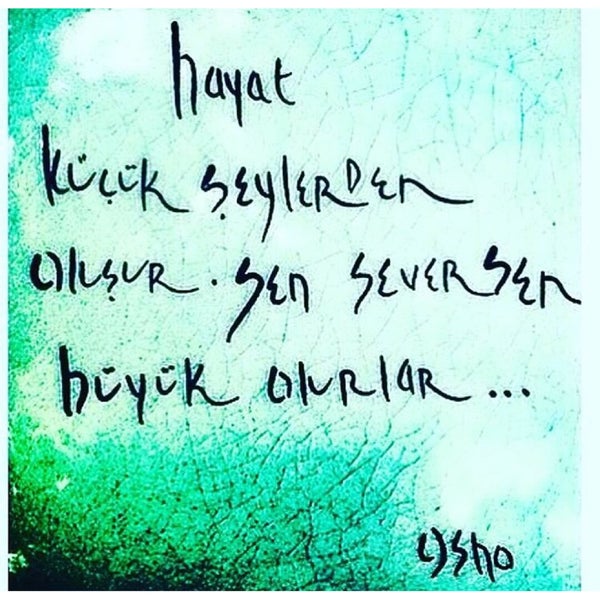 hayat
küçük şeylerden
oluşur. Sen seversen
büyük olurlar...
Osho